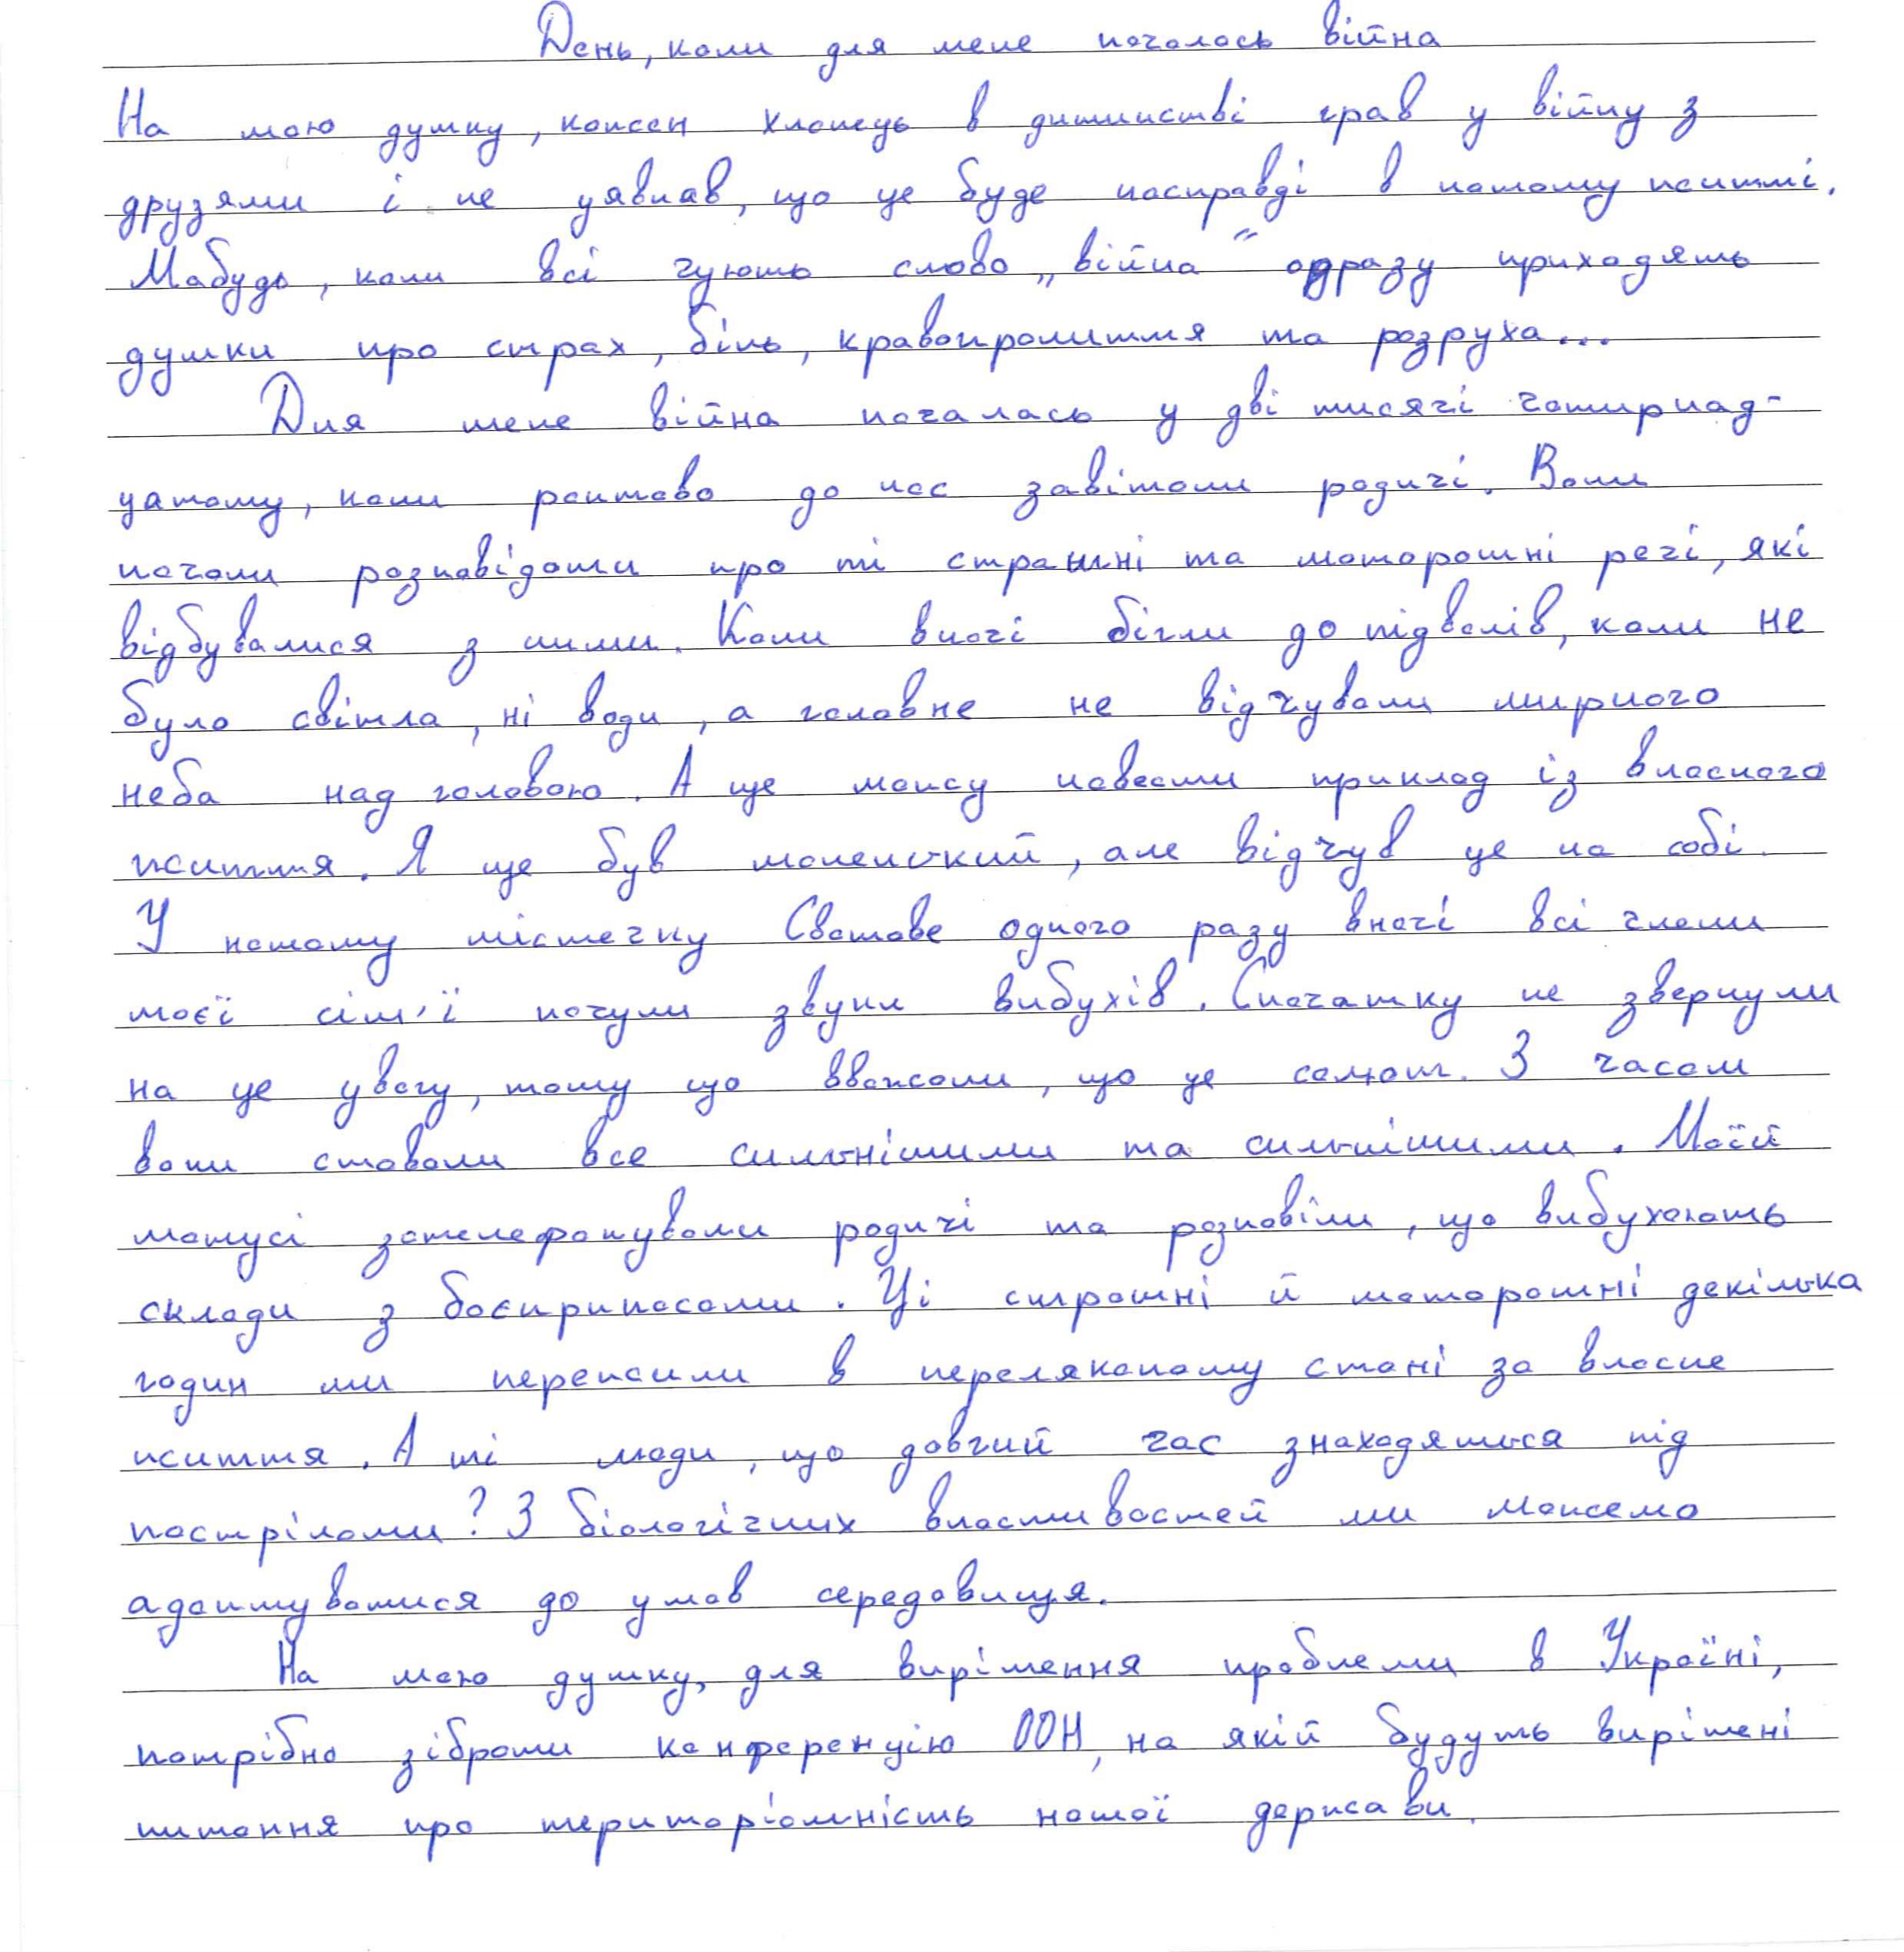 День, коли для мене почалась війна
На мою думку, кожен хлопець в дитинстві грав у війну з
друзями і не уявляв, що це буде насправді в нашому житті.
Мабудь, коли всі чують слово „війна" одразу приходять
думки про страх, біль, кравопролиття та розруха...
Для мене війна почалась у дві тисячі чотирнад-
цатому, коли раптово до нас завітали родичі. Вони
почали розповідати про ті страшні та моторошні речі, які
відбувалися з ними. Коли вночі бігли до підвалів, коли не
було світла, ні води, а головне не відчували мирного
неба над головою. А ще можу навести приклад із власного
життя. Я ще був маленький, але відчув це на собі.
У нашому містечку Сватове одного разу вночі всі члени
моєї сім'ї почули звуки вибухів. Спочатку не звернули
на це увагу, тому що вважали, що це салют. З часом
вони ставали все сильнішими та сильнішими. Моїй
матусі зателефонували родичі та розповіли, що вибухають
склади з боєприпасами. Ці страшні й моторошні декілька
годин ми пережили в переляканому стані за власне
життя. А ті люди, що довгий час знаходяться під
пострілами? З біологічних властивостей ми можемо
адаптуватися до умов середовища.
На мою думку, для вирішення проблеми в Україні,
потрібно зібрати конференцію ООН, на якій будуть вирішені
питання про територіальність нашої держави.